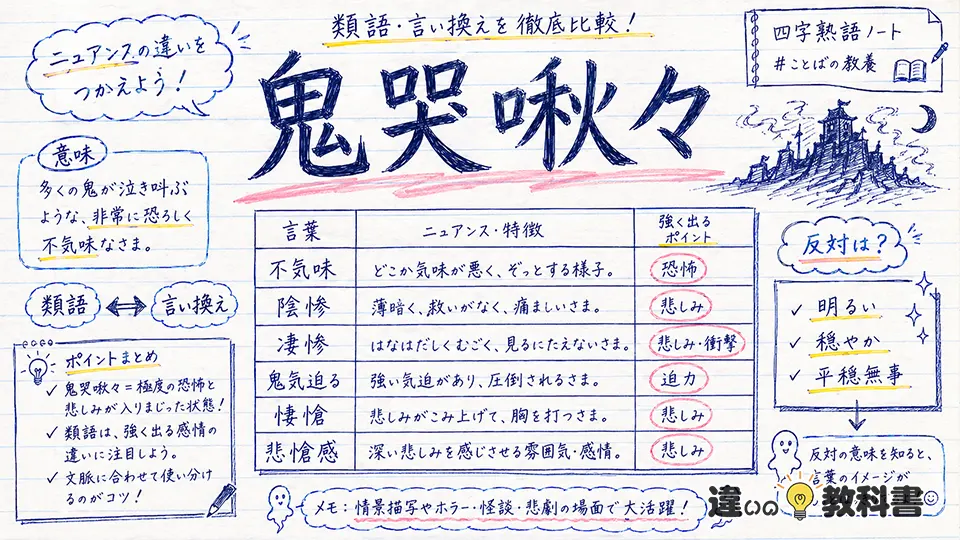 ニュアンスの違いを
つかえよう!
類語・言い換えを徹底比較!
四字熟語ノート
#ことばの教養
鬼哭啾々
意味
多くの鬼が泣き叫ぶ
ような、非常に恐ろしく
不気味なさま。
類語 言い換え
ポイントまとめ
✓ 鬼哭啾々=極度の恐怖と
悲しみが入りまじった状態!
✓ 類語は、強く出る感情の
違いに注目しよう。
✓ 文脈に合わせて使い分け
るのがコツ!
言葉 ニュアンス・特徴 強く出る
ポイント
不気味 どこか気味が悪く、ぞっとする様子。 恐怖
陰惨 薄暗く、救いがなく、痛ましいさま。 悲しみ
凄惨 はなはだしくむごく、見るにたえないさま。 悲しみ・衝撃
鬼気迫る 強い気迫があり、圧倒されるさま。 迫力
悽愴 悲しみがこみ上げて、胸を打つさま。 悲しみ
悲愴感 深い悲しみを感じさせる雰囲気・感情。 悲しみ
メモ:情景描写やホラー・怪談・悲劇の場面で大活躍!
反対は?
✓ 明るい
✓ 穏やか
✓ 平穏無事
反対の意味を知ると、
言葉のイメージが
違いの教科書